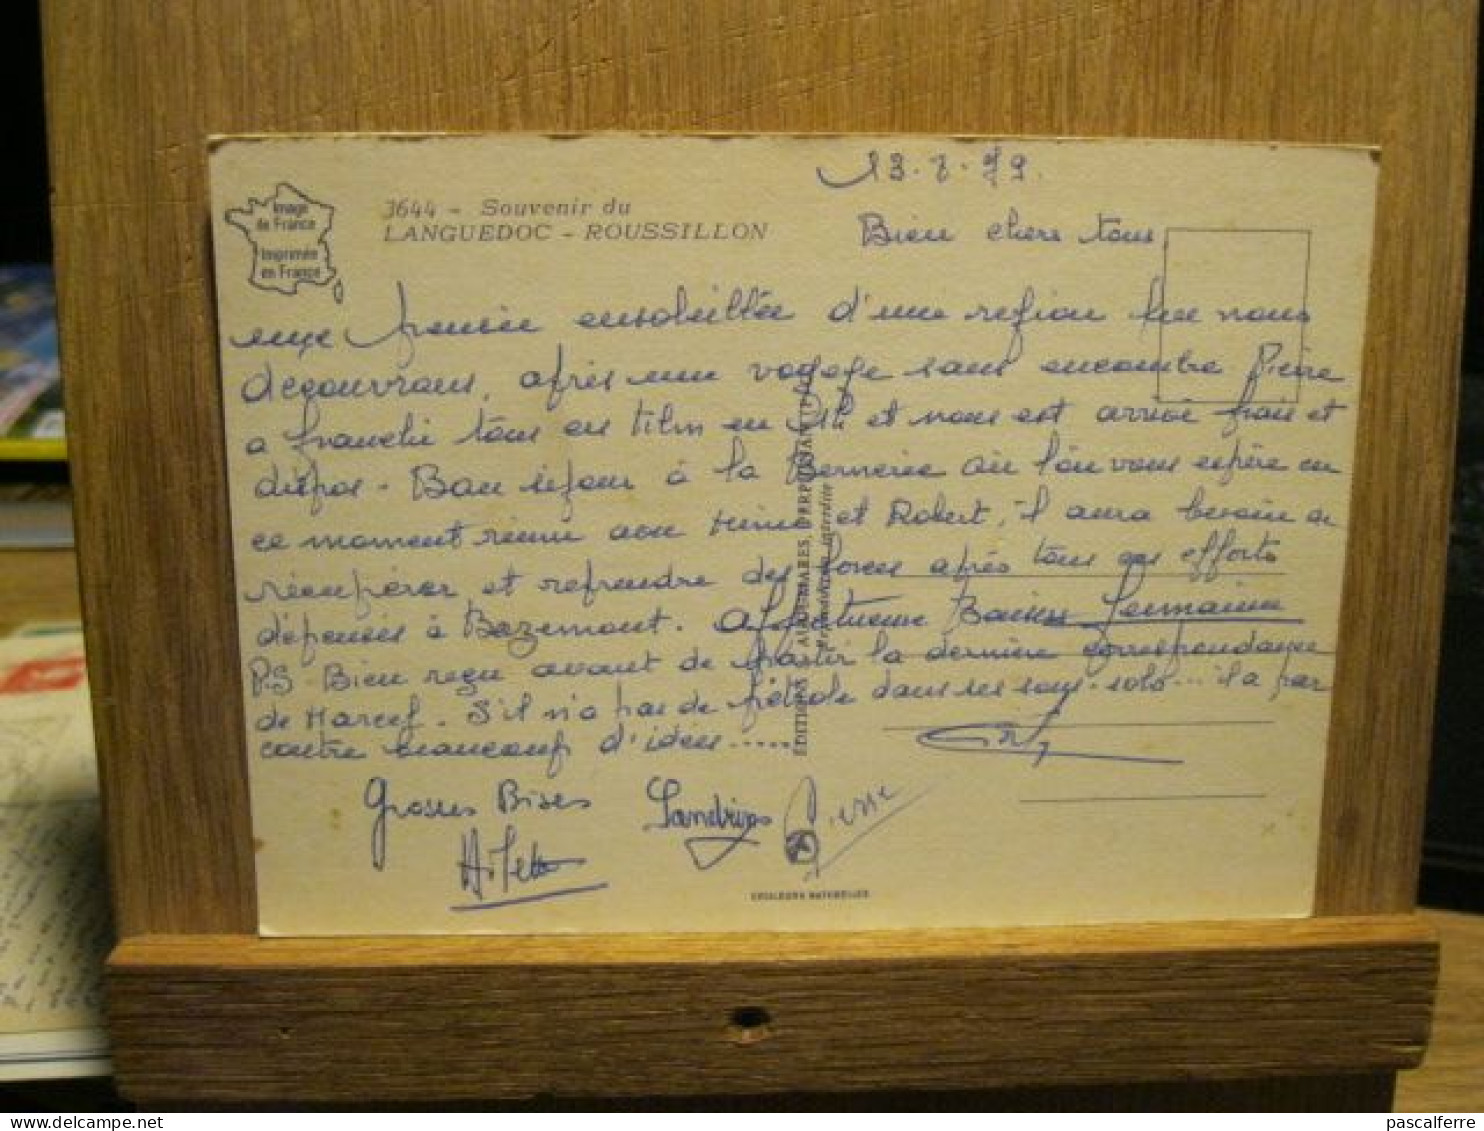 13.7.79.
Image
de France
Imprimée
en France
3644 - Souvenir du
LANGUEDOC - ROUSSILLON
Bien chers tous,
une pensée ensoleillée d'une region que nous
decouvrons, après un voyage sans encombre Pierre
a franchi tous ces km en et nous est arrivé frais et
dispos - Bon séjour à la Bernerie où l'on vous espère en
ce moment réuni avec et Robert, il aura besoin de
récupérer et reprendre des forces après tous ces efforts
dépensés à Bozemont. Affectueux Baisers Germaine
PS - Bien reçu avant de partir la dernière correspondance
de Marcel. S'il n'a pas de pétrole dans ses sous-sols... il a par
contre beaucoup d'idées .....
Grosses Bises
Sandrine
Pierre
EDITIONS AUDUMARES, PERPIGNAN
Reproduction interdite
COULEURS NATURELLES
delcampe.net
pascalferre